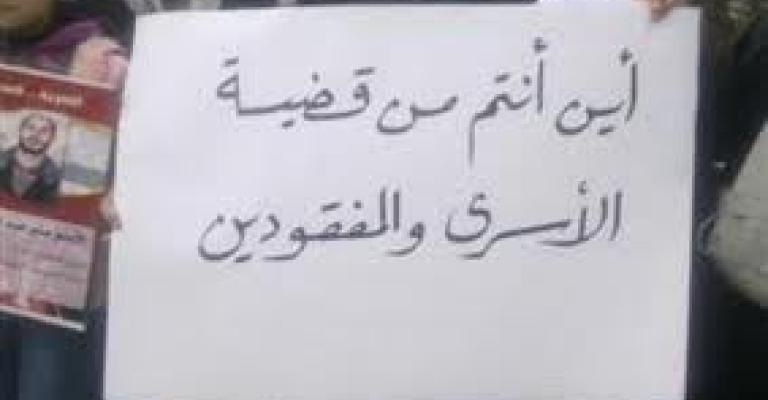 أين أنتم من قضية
الأسرى والمفقودين